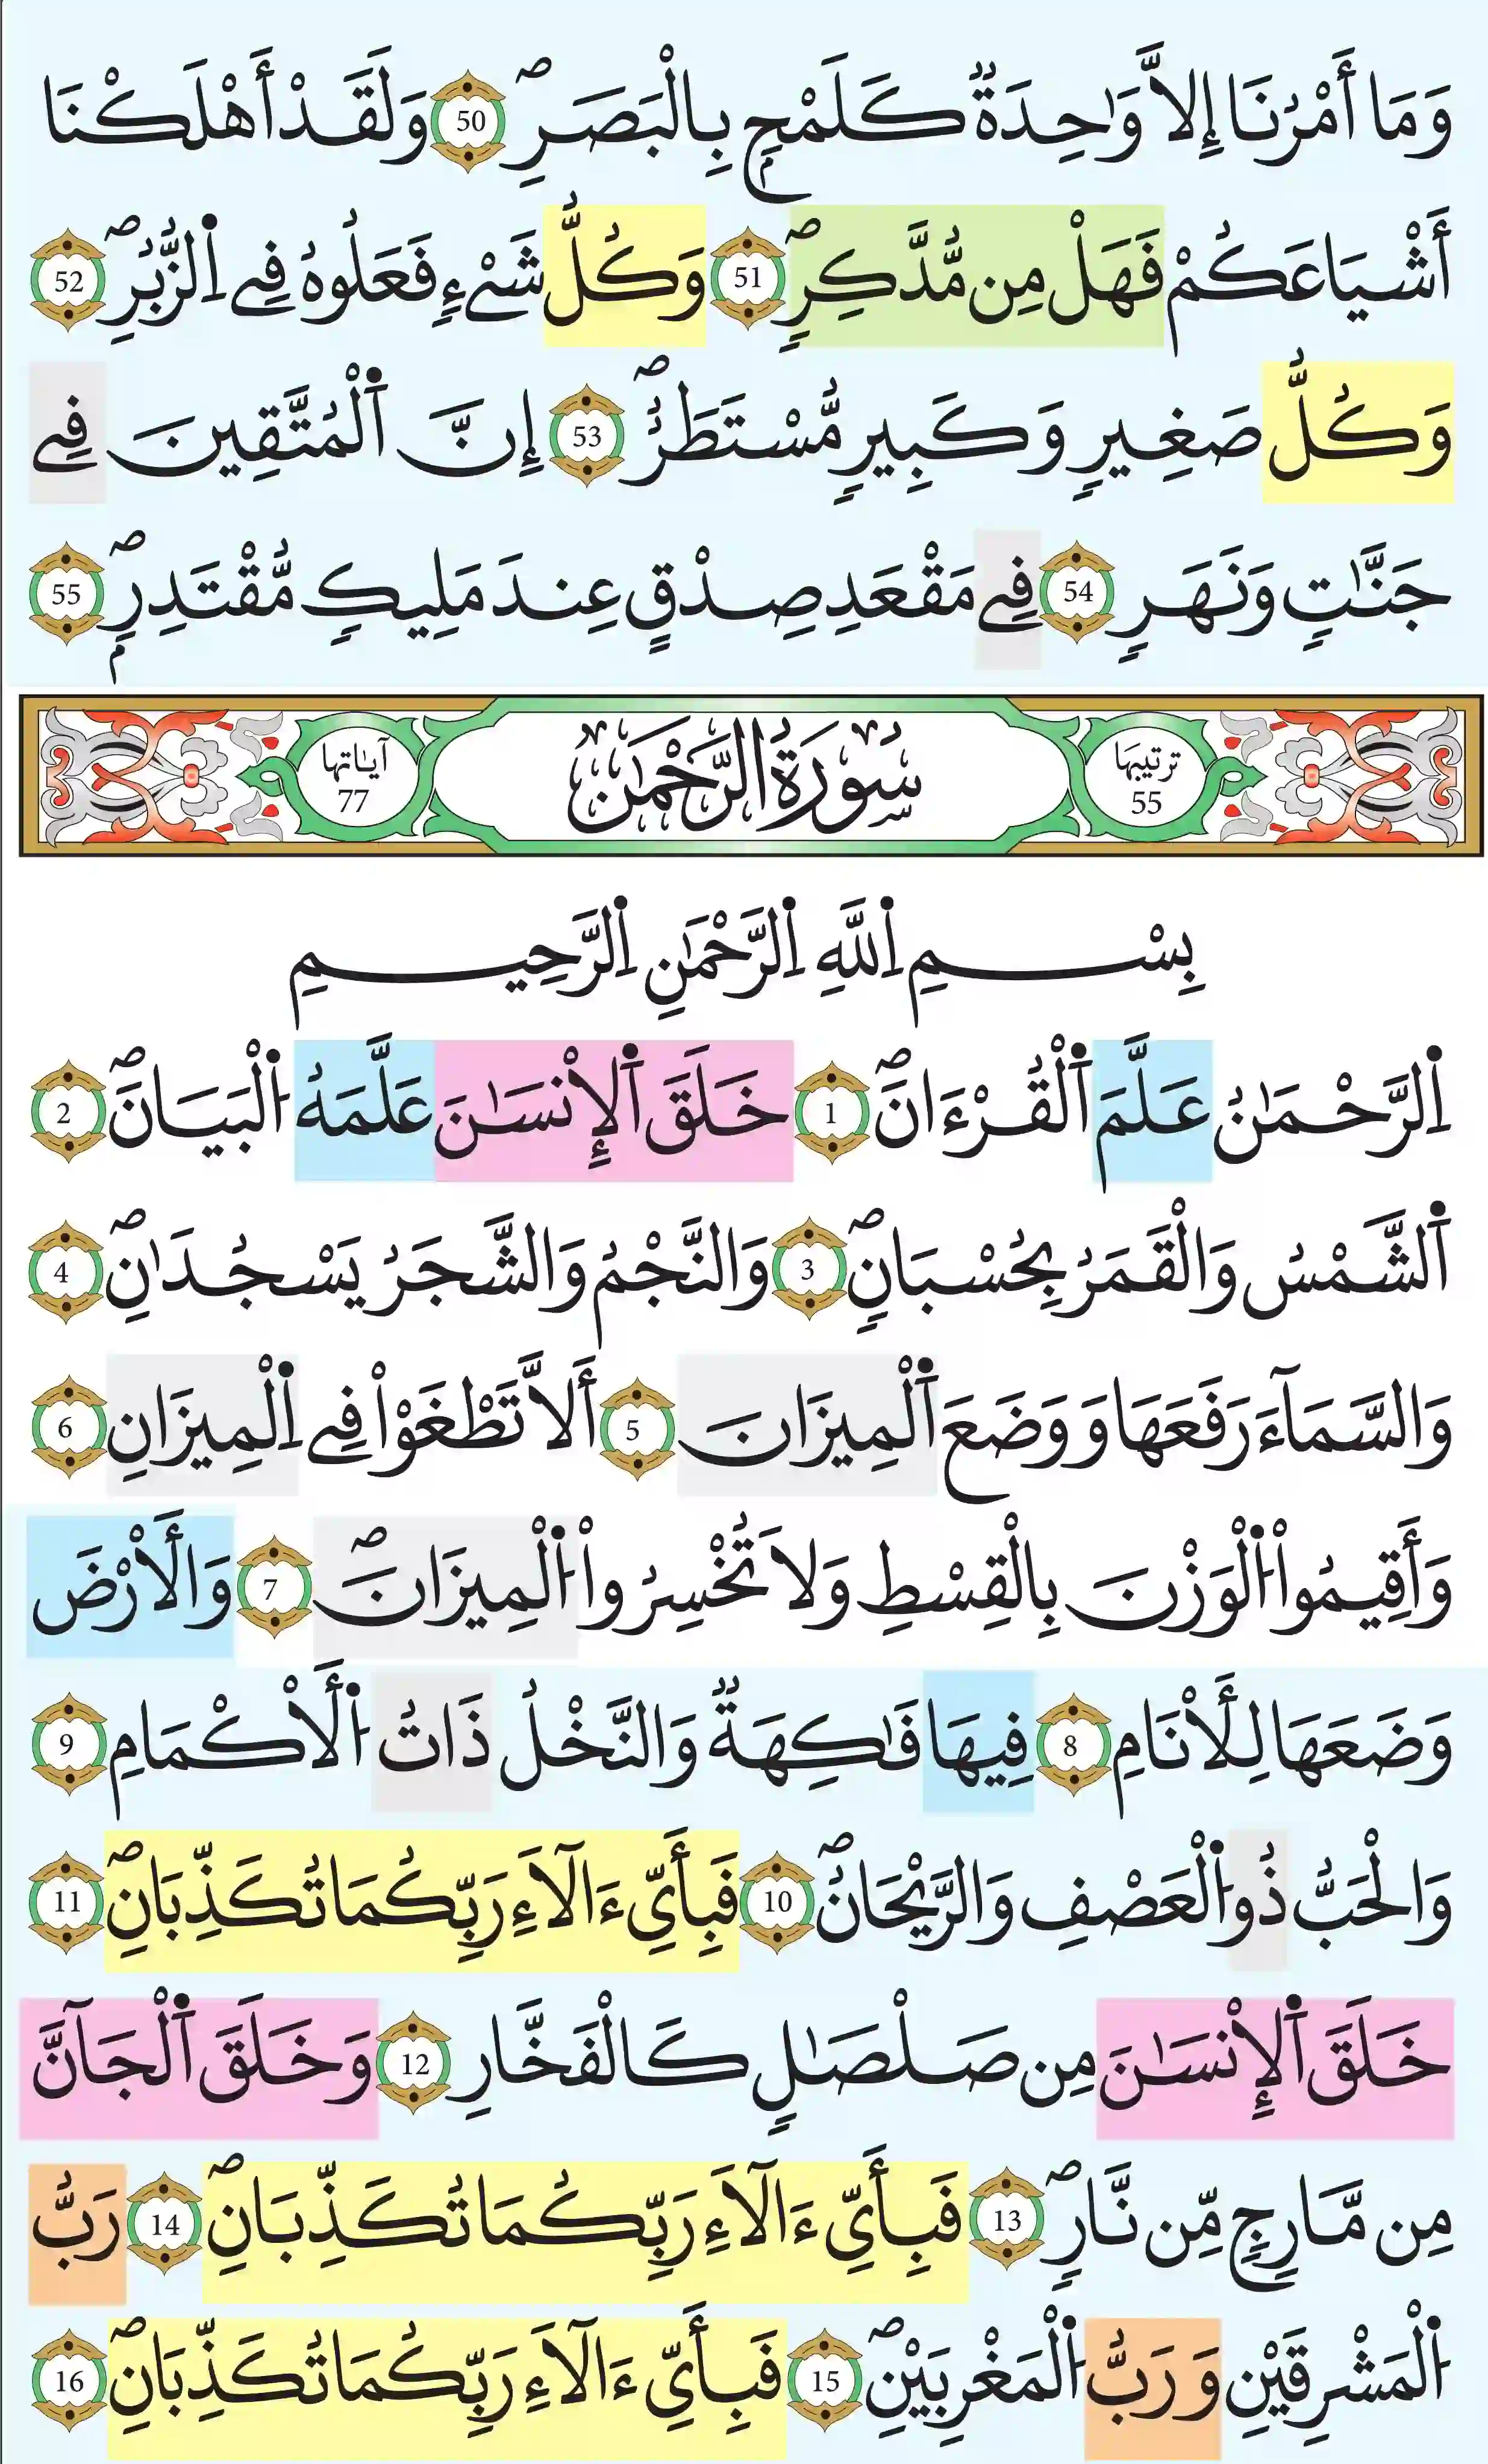 وَمَا أَمْرُنَا إِلاَّ وَٰحِدَةٞ كَلَمْحِۢ بِالْبَصَرِۖ 50 وَلَقَدْ أَهْلَكْنَا
أَشْيَاعَكُمْ فَهَلْ مِن مُّدَّكِرٖۖ 51 وَكُلُّ شَےْءٖ فَعَلُوهُ فِے اِ۬لزُّبُرِۖ 52
وَكُلُّ صَغِيرٖ وَكَبِيرٖ مُّسْتَطَرٌۖ 53 إِنَّ اَ۬لْمُتَّقِينَ فِے
جَنَّٰتٖ وَنَهَرٖ 54 فِے مَقْعَدِ صِدْقٍ عِندَ مَلِيكٖ مُّقْتَدِرِۢۖ 55
ترتيبها 55 سُورَةُ الرَّحْمَٰن آياتها 77
بِسْمِ اِ۬للَّهِ اِ۬لرَّحْمَٰنِ اِ۬لرَّحِيمِ
اِ۬لرَّحْمَٰنُ عَلَّمَ اَ۬لْقُرْءَانَۖ 1 خَلَقَ اَ۬لْإِنْسَٰنَ عَلَّمَهُ اُ۬لْبَيَانَۖ 2
اَ۬لشَّمْسُ وَالْقَمَرُ بِحُسْبَانٖۖ 3 وَالنَّجْمُ وَالشَّجَرُ يَسْجُدَٰنِۖ 4
وَالسَّمَآءَ رَفَعَهَا وَوَضَعَ اَ۬لْمِيزَانَ 5 أَلاَّ تَطْغَوْاْ فِے اِ۬لْمِيزَانِ 6
وَأَقِيمُواْ اُ۬لْوَزْنَ بِالْقِسْطِ وَلَا تُخْسِرُواْ اُ۬لْمِيزَانَۖ 7 وَالَارْضَ
وَضَعَهَا لِلَانَامِ 8 فِيهَا فَٰكِهَةٞ وَالنَّخْلُ ذَاتُ اُ۬لَاكْمَامِ 9
وَالْحَبُّ ذُو اُ۬لْعَصْفِ وَالرَّيْحَانُۖ 10 فَبِأَيِّ ءَالَآءِ رَبِّكُمَا تُكَذِّبَانِۖ 11
خَلَقَ اَ۬لْإِنْسَٰنَ مِن صَلْصَٰلٖ كَالْفَخَّارِ 12 وَخَلَقَ اَ۬لْجَآنَّ
مِن مَّارِجٖ مِّن نَّارٖۖ 13 فَبِأَيِّ ءَالَآءِ رَبِّكُمَا تُكَذِّبَانِۖ 14 رَبُّ
اُ۬لْمَشْرِقَيْنِ وَرَبُّ اُ۬لْمَغْرِبَيْنِۖ 15 فَبِأَيِّ ءَالَآءِ رَبِّكُمَا تُكَذِّبَانِۖ 16